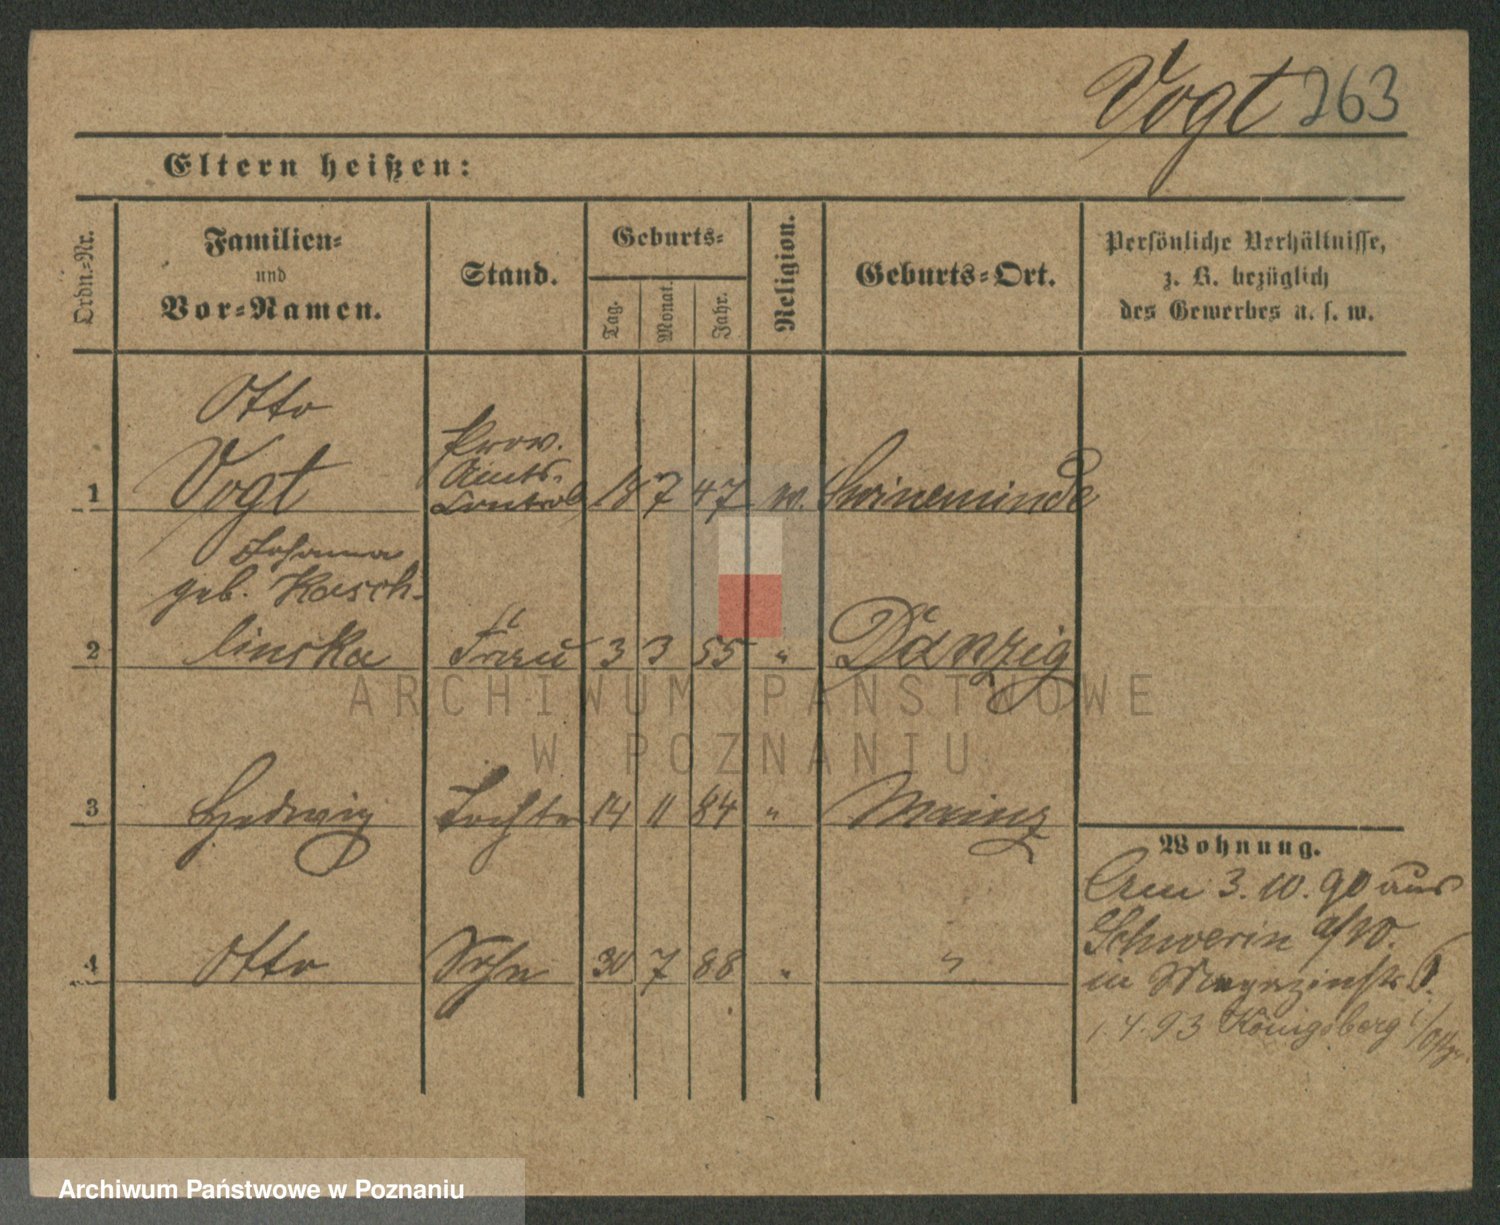 Vogt 263
Eltern heißen:
Ordn.-Nr.
Familien-
und
Vor-Namen.
Stand.
Geburts-
Tag.
Monat.
Jahr.
Religion.
Geburts-Ort.
Persönliche Verhältnisse,
z. B. bezüglich
des Gewerbes u. s. w.
Otto
Prov.
Amts-
1 Vogt Control 18 7 47 ev. Swineminde
Johanna
geb. Kasch-
2 linska Frau 3 3 55 " Danzig
3 Hedwig Tochter 14 11 84 " Mainz
Wohnung.
Am 3.10.90 aus
Schwerin a/W.
4 Otto Sohn 30 7 88 " "
in Magazinstr.
1.4.93 Königsberg i/Ostpr.
ARCHIWUM PAŃSTWOWE
W POZNANIU
Archiwum Państwowe w Poznaniu